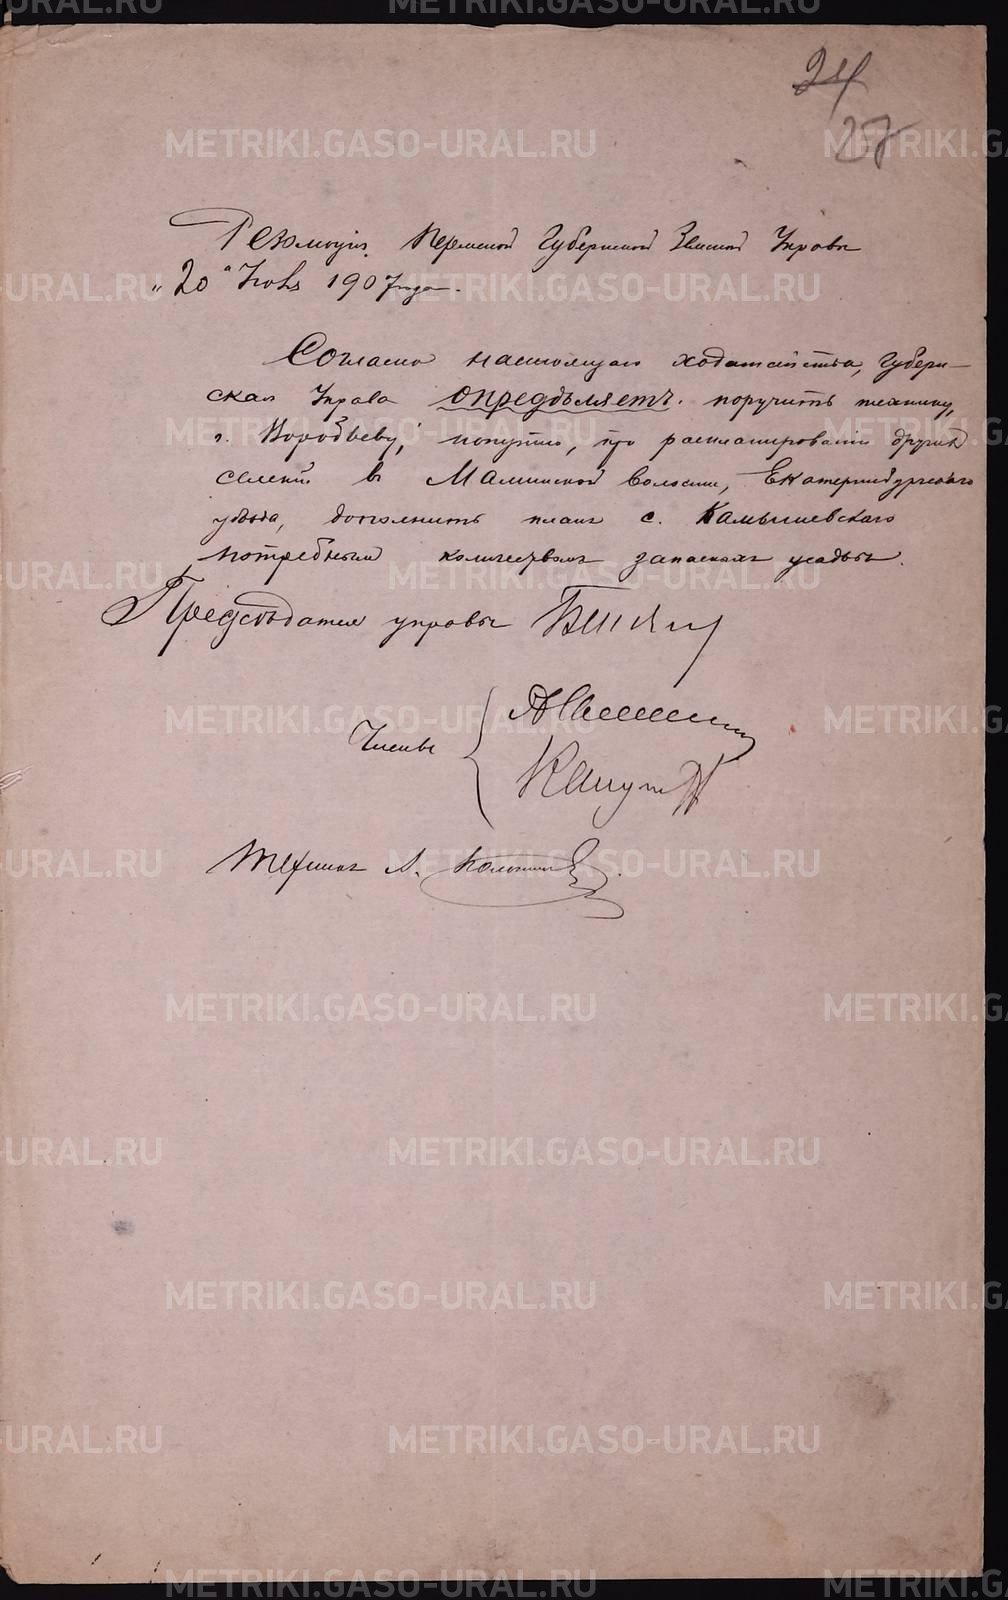 24
27
Резолюція Пермской Губернской Земской Управы
„20" Іюня 1907 года.
Согласно настоящаго ходатайства, Губерн-
ская Управа опредѣляетъ: поручить технику,
г. Воробьеву, попутно, при распланированіи другихъ
селеній въ Маминской волости, Екатеринбургскаго
уѣзда, дополнить планъ с. Камышевскаго
потребнымъ количествомъ запасныхъ усадьбъ.
Предсѣдатель управы
Члены
Техникъ А.
METRIKI.GASO-URAL.RU